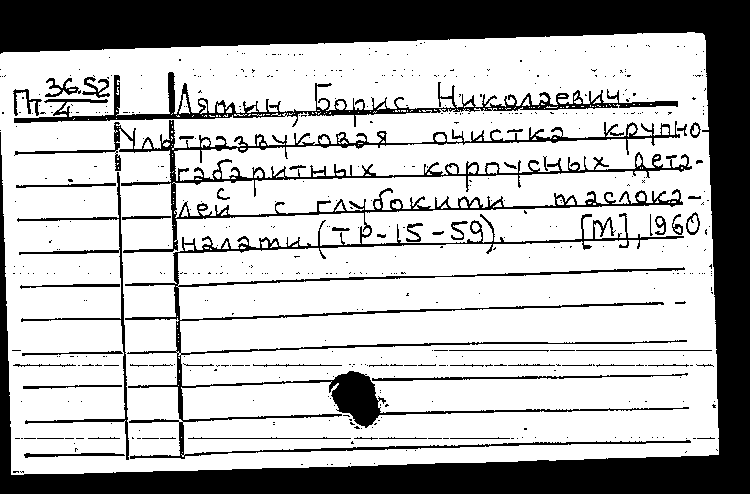 Пт 36.52/4 Лямин, Борис Николаевич.
Ультразвуковая очистка крупно-
габаритных корпусных дета-
лей с глубокими маслока-
налами. (ТР-15-59). [М.], 1960.